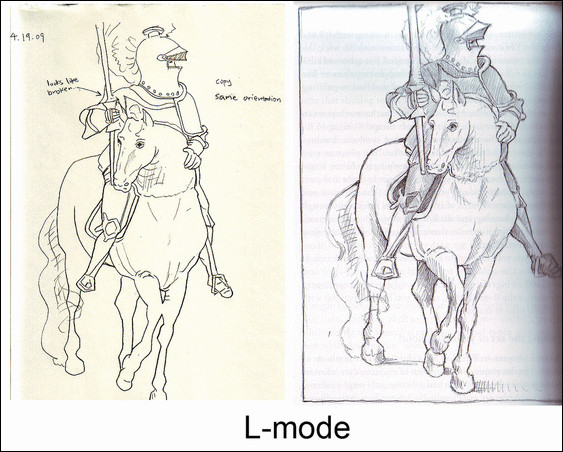 4.19.09
looks like
broken
copy
same orientation
L-mode